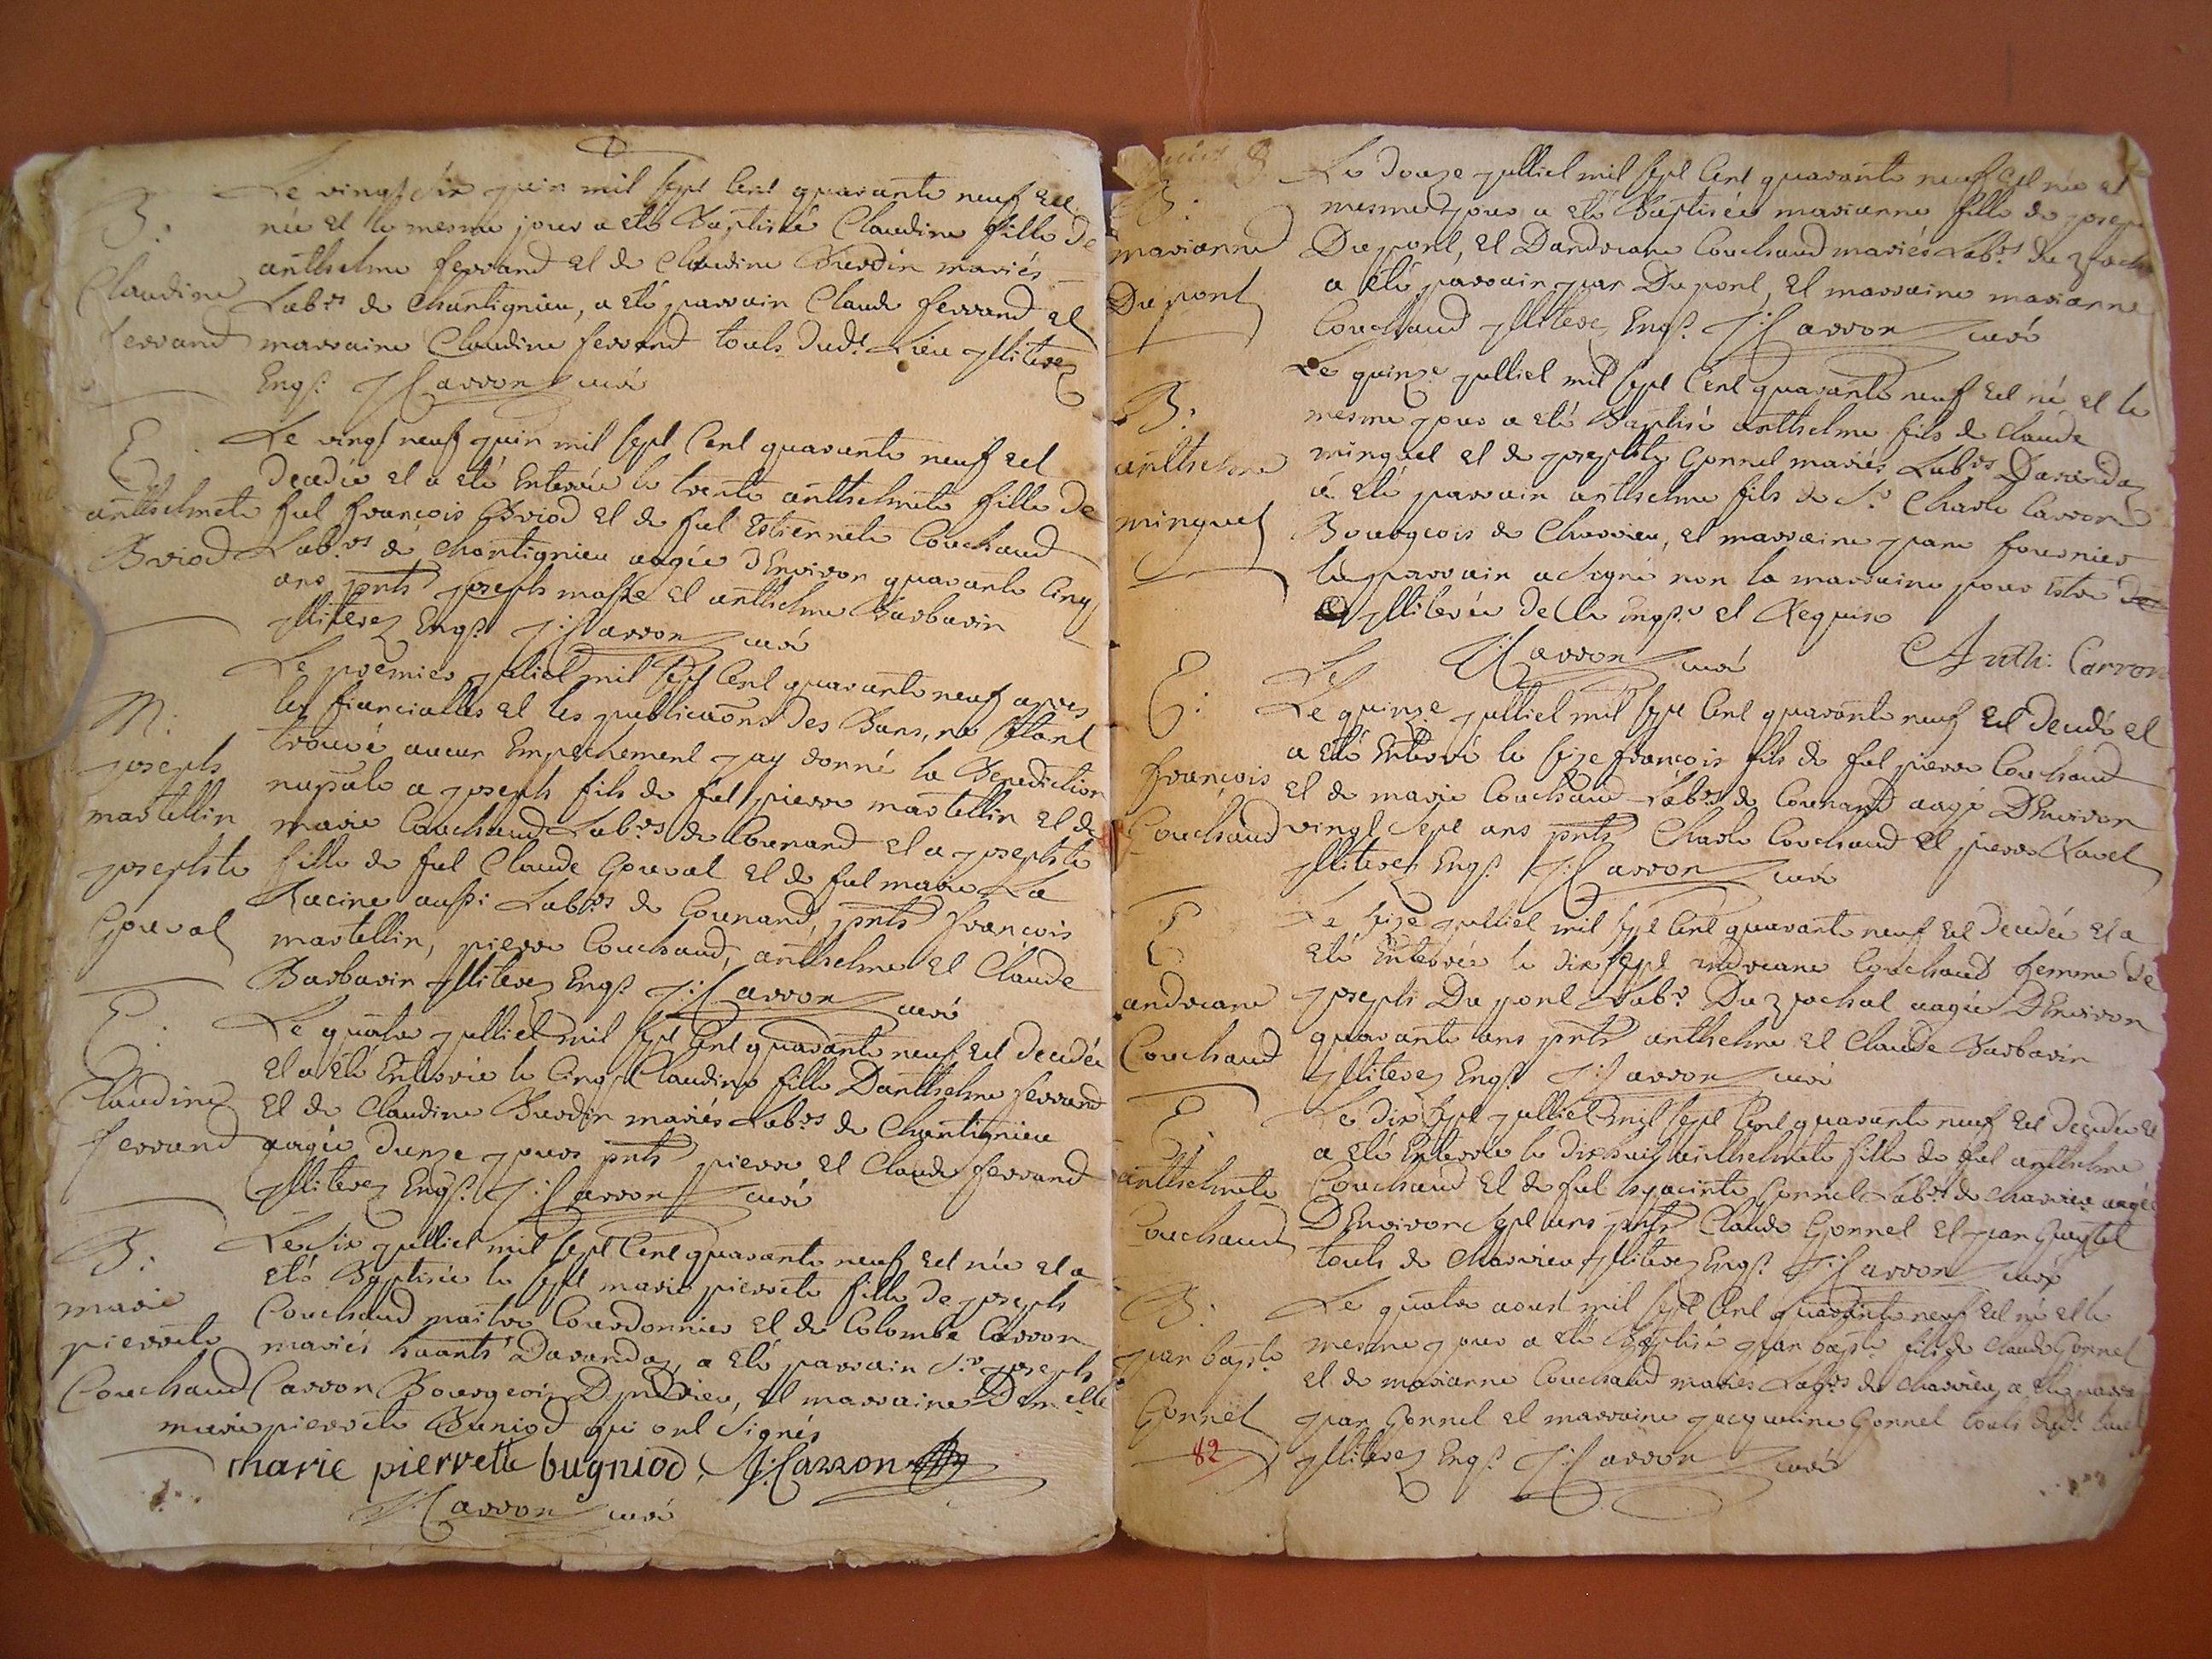 B:
Claudine
ferrand
Le vingt six juin mil sept cent quarante neuf est
née et le mesme jour a eté Baptisée Claudine fille de
anthelme ferrand et de Claudine Burdin mariés
Labrs de Chantignieu, a eté parrain Claude ferrand et
marraine Claudine ferrand touts dudt Lieu jlliterez
Enqs J: Carron curé
E
anthelmete
Briod
Le vingt neuf juin mil sept cent quarante neuf est
decedée et a eté Enterrée le trente anthelmete fille de
fut françois Briod et de fut Estiennete Couchaud
Labrs de Chantignieu aagée d'Environ quarante cinq
ans pnts joseph masse et anthelme Barbarin
jlliterez Enqs J: Carron curé
M:
joseph
martellin
josephte
Goueval
Le premier julliet mil sept cent quarante neuf apres
les fiancialles et les publicaõns des Bans, ne s'étant
trouvé aucun Empechement jay donné la Benediction
nupsale a joseph fils de fut pierre martellin et de
marie Couchaud Labrs de Counand et a josephte
fille de fut Claude Goueval et de fut marie La
Racine aussi Labrs de Counand, pnts françois
martellin, pierre Couchaud, anthelme et Claude
Barbarin jlliterez Enqs J: Carron curé
E:
Claudine
ferrand
Le quatre julliet mil sept cent quarante neuf est decedée
et a eté Enterrée le cinq Claudine fille D'anthelme ferrand
et de Claudine Burdin mariés Labrs de Chantignieu
aagée d'unze jours pnts pierre et Claude ferrand
jlliterez Enqs J: Carron curé
B:
marie
pierrete
Couchaud
Le six julliet mil sept cent quarante neuf est née et a
eté Baptisée le sept marie pierrete fille de joseph
Couchaud maitre Courdonnier et de Colombe Carron
mariés havants Davandaz, a eté parrain Sr joseph
Carron Bourgeois D'jndrieu, et marraine Demelle
marie pierrete Buniod qui ont signés
marie pierrette bugniod, J: Carron
J: Carron curé
B:
marianne
Dupont
Le douze julliet mil sept cent quarante neuf est née et
mesme jour a eté Baptisée marianne fille de joseph
Dupont, et Dandreane Couchaud mariés Labrs du
a eté parrain jean Dupont, et marraine marianne
Couchaud jlliterez Enqs J: Carron curé
B:
anthelme
minguet
Le quinze julliet mil sept cent quarante neuf est né et le
mesme jour a eté Baptisé anthelme fils de Claude
minguet et de josephte Gonnet mariés Labrs Davandaz
a eté parrain anthelme fils de Sr Charle Carron
Bourgeois de Charrieu, et marraine jeane fournier
le parrain a signé non la marraine pour estre
jlliterée de ce enqse et Requise
J: Carron curé Anth: Carron
E:
françois
Couchaud
Le quinze julliet mil sept cent quarante neuf est decedé et
a eté Enterré le seize françois fils de fut pierre Couchaud
et de marie Couchaud Labrs de Counand aagé D'Environ
vingt sept ans pnts Charle Couchaud et pierre Ravet
jlliterez Enqs J: Carron curé
E
andreane
Couchaud
Le seize julliet mil sept cent quarante neuf est decedée et a
eté Enterrée le dix sept andreane Couchaud femme de
joseph Dupont Labr Du aagée D'Environ
quarante ans pnts anthelme et Claude Barbarin
jlliterez Enqs J: Carron curé
E:
anthelmete
Couchaud
Le dix sept julliet mil sept cent quarante neuf est decedée et
a eté Enterrée le dix huit anthelmete fille de fut anthelme
Couchaud et de fut hyacinte Gonnet Labrs de Charrieu aagée
D'Environ sept ans pnts Claude Gonnet et jean
touts de Charrieu jlliterez Enqs J: Carron curé
B:
jean bapte
Gonnet
82
Le quatre aoust mil sept cent quarante neuf est né et le
mesme jour a eté Baptisé jean bapte fils de Claude Gonnet
et de marianne Couchaud mariés Labrs de Charrieu, a eté parrain
jean Gonnet et marraine jacquemine Gonnet touts dudt lieu
jlliterez Enqs J: Carron curé